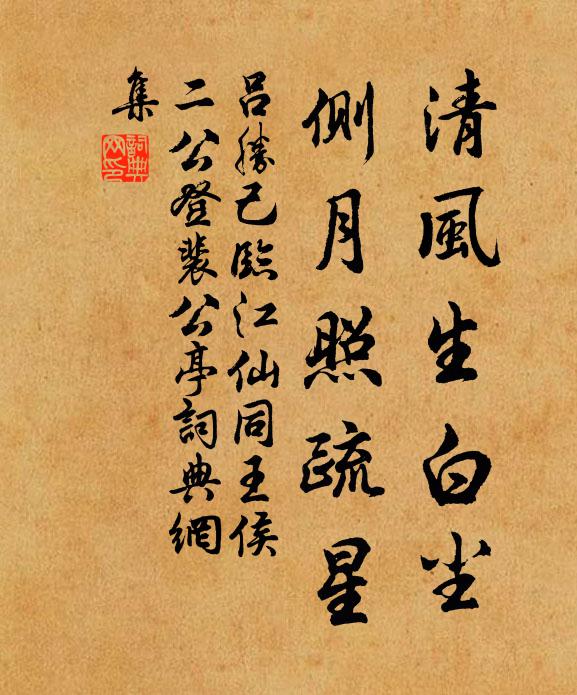 清風生白坐
側月照疏星
呂勝己臨江仙同王侯
二公登裴公亭詞典網
集
詞典网印